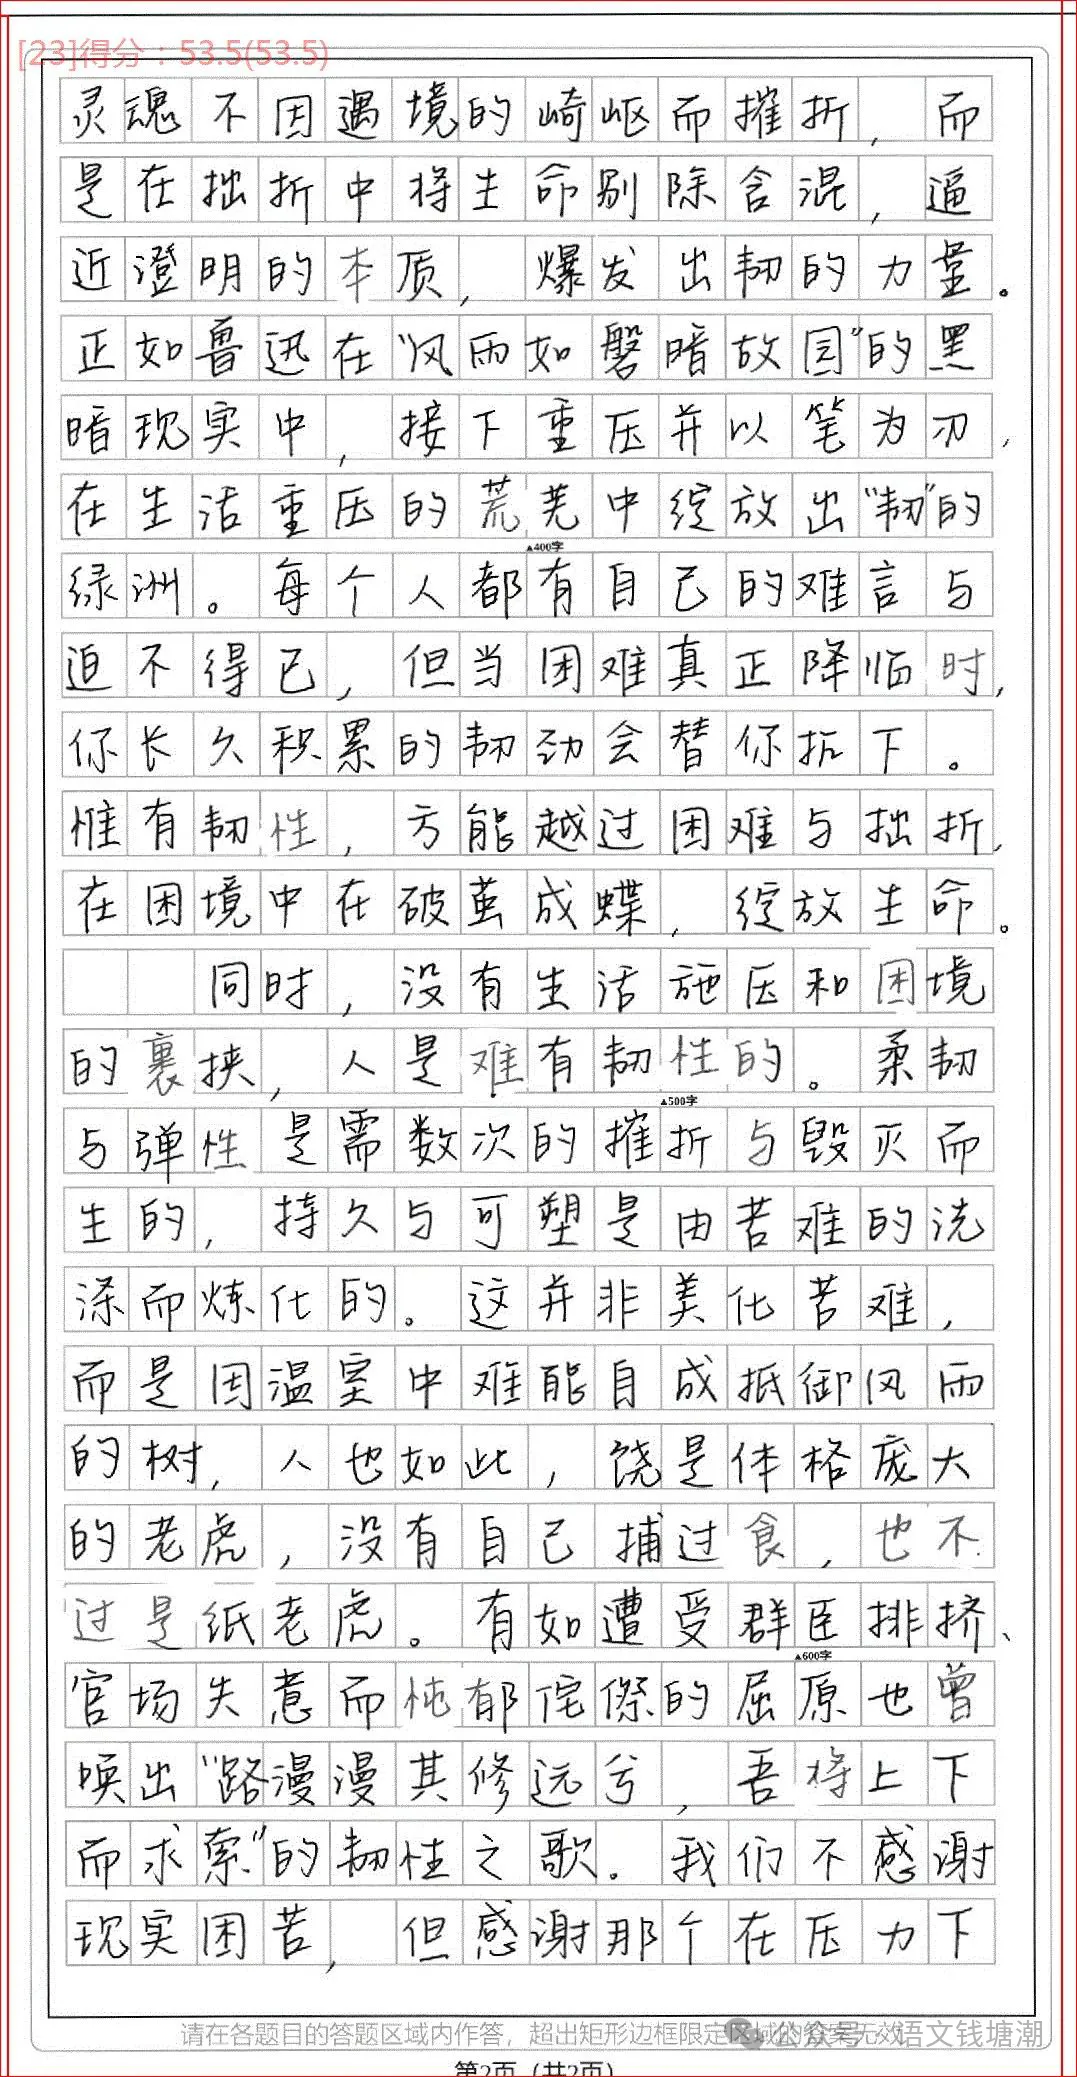 [23]得分：53.5(53.5)
灵魂不因遇境的崎岖而摧折，而
是在拙折中将生命剔除含混，逼
近澄明的本质，爆发出韧的力量。
正如鲁迅在“风雨如磐暗故园”的黑
暗现实中，接下重压并以笔为刃，
在生活重压的荒芜中绽放出“韧”的
▲400字
绿洲。每个人都有自己的难言与
迫不得已，但当困难真正降临时，
你长久积累的韧劲会替你抗下。
惟有韧性，方能越过困难与拙折，
在困境中在破茧成蝶，绽放生命。
同时，没有生活施压和困境
的裹挟，人是难有韧性的。柔韧
▲500字
与弹性是需数次的摧折与毁灭而
生的，持久与可塑是由苦难的洗
涤而炼化的。这并非美化苦难，
而是因温室中难能自成抵御风雨
的树，人也如此，饶是体格庞大
的老虎，没有自己捕过食，也不
过是纸老虎。有如遭受群臣排挤、
▲600字
官场失意而忳郁侘傺的屈原也曾
唤出“路漫漫其修远兮，吾将上下
而求索”的韧性之歌。我们不感谢
现实困苦，但感谢那个在压力下
请在各题目的答题区域内作答，超出矩形边框限定区域的答案无效
公众号·语文钱塘潮
第2页（共2页）